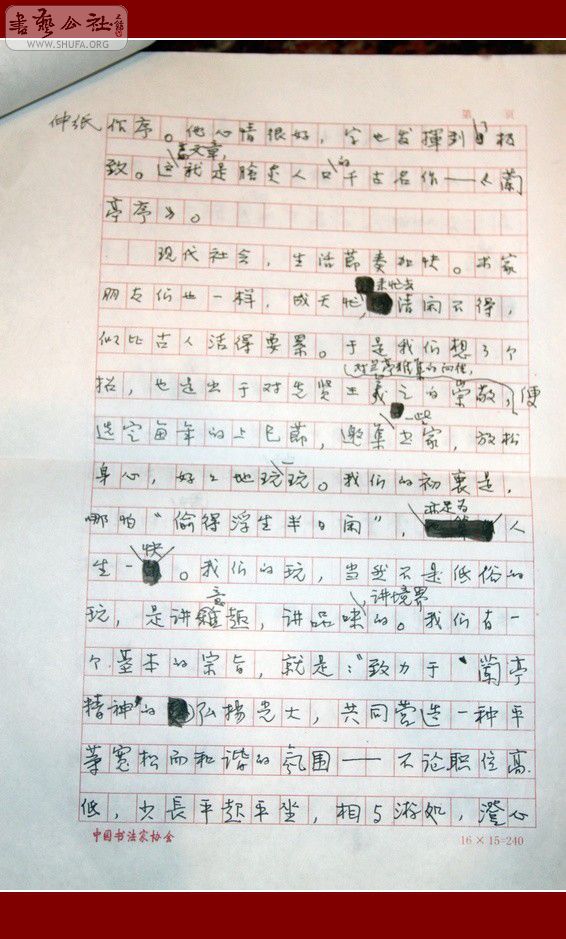 書艺公社
www.SHUFA.ORG
第 页
伸纸作序。他心情很好，字也发揮到了极
致。这篇文章，就是脍炙人口的千古名作——《蘭
亭序》。
现代社会，生活節奏加快。书家
朋友们也一样，成天忙来忙去，清闲不得，
似比古人活得要累。于是我们想了个
招，也是出于对先贤王羲之的崇敬，对兰亭雅集的向往，便
选定每年的上巳節，邀集一些书家，放松
身心，好好地玩一玩。我们的初衷是，
哪怕“偷得浮生半日闲”，亦是为人
生一快。我们的玩，当然不是低俗的
玩，是讲意趣，讲品味，讲境界的。我们有一
个基本的宗旨，就是：“致力于‘蘭亭
精神’的弘揚光大，共同营造一种平
等宽松而和谐的氛围——不论职位高
低，少長平起平坐，相与游处，澄心
中国书法家协会
16×15=240